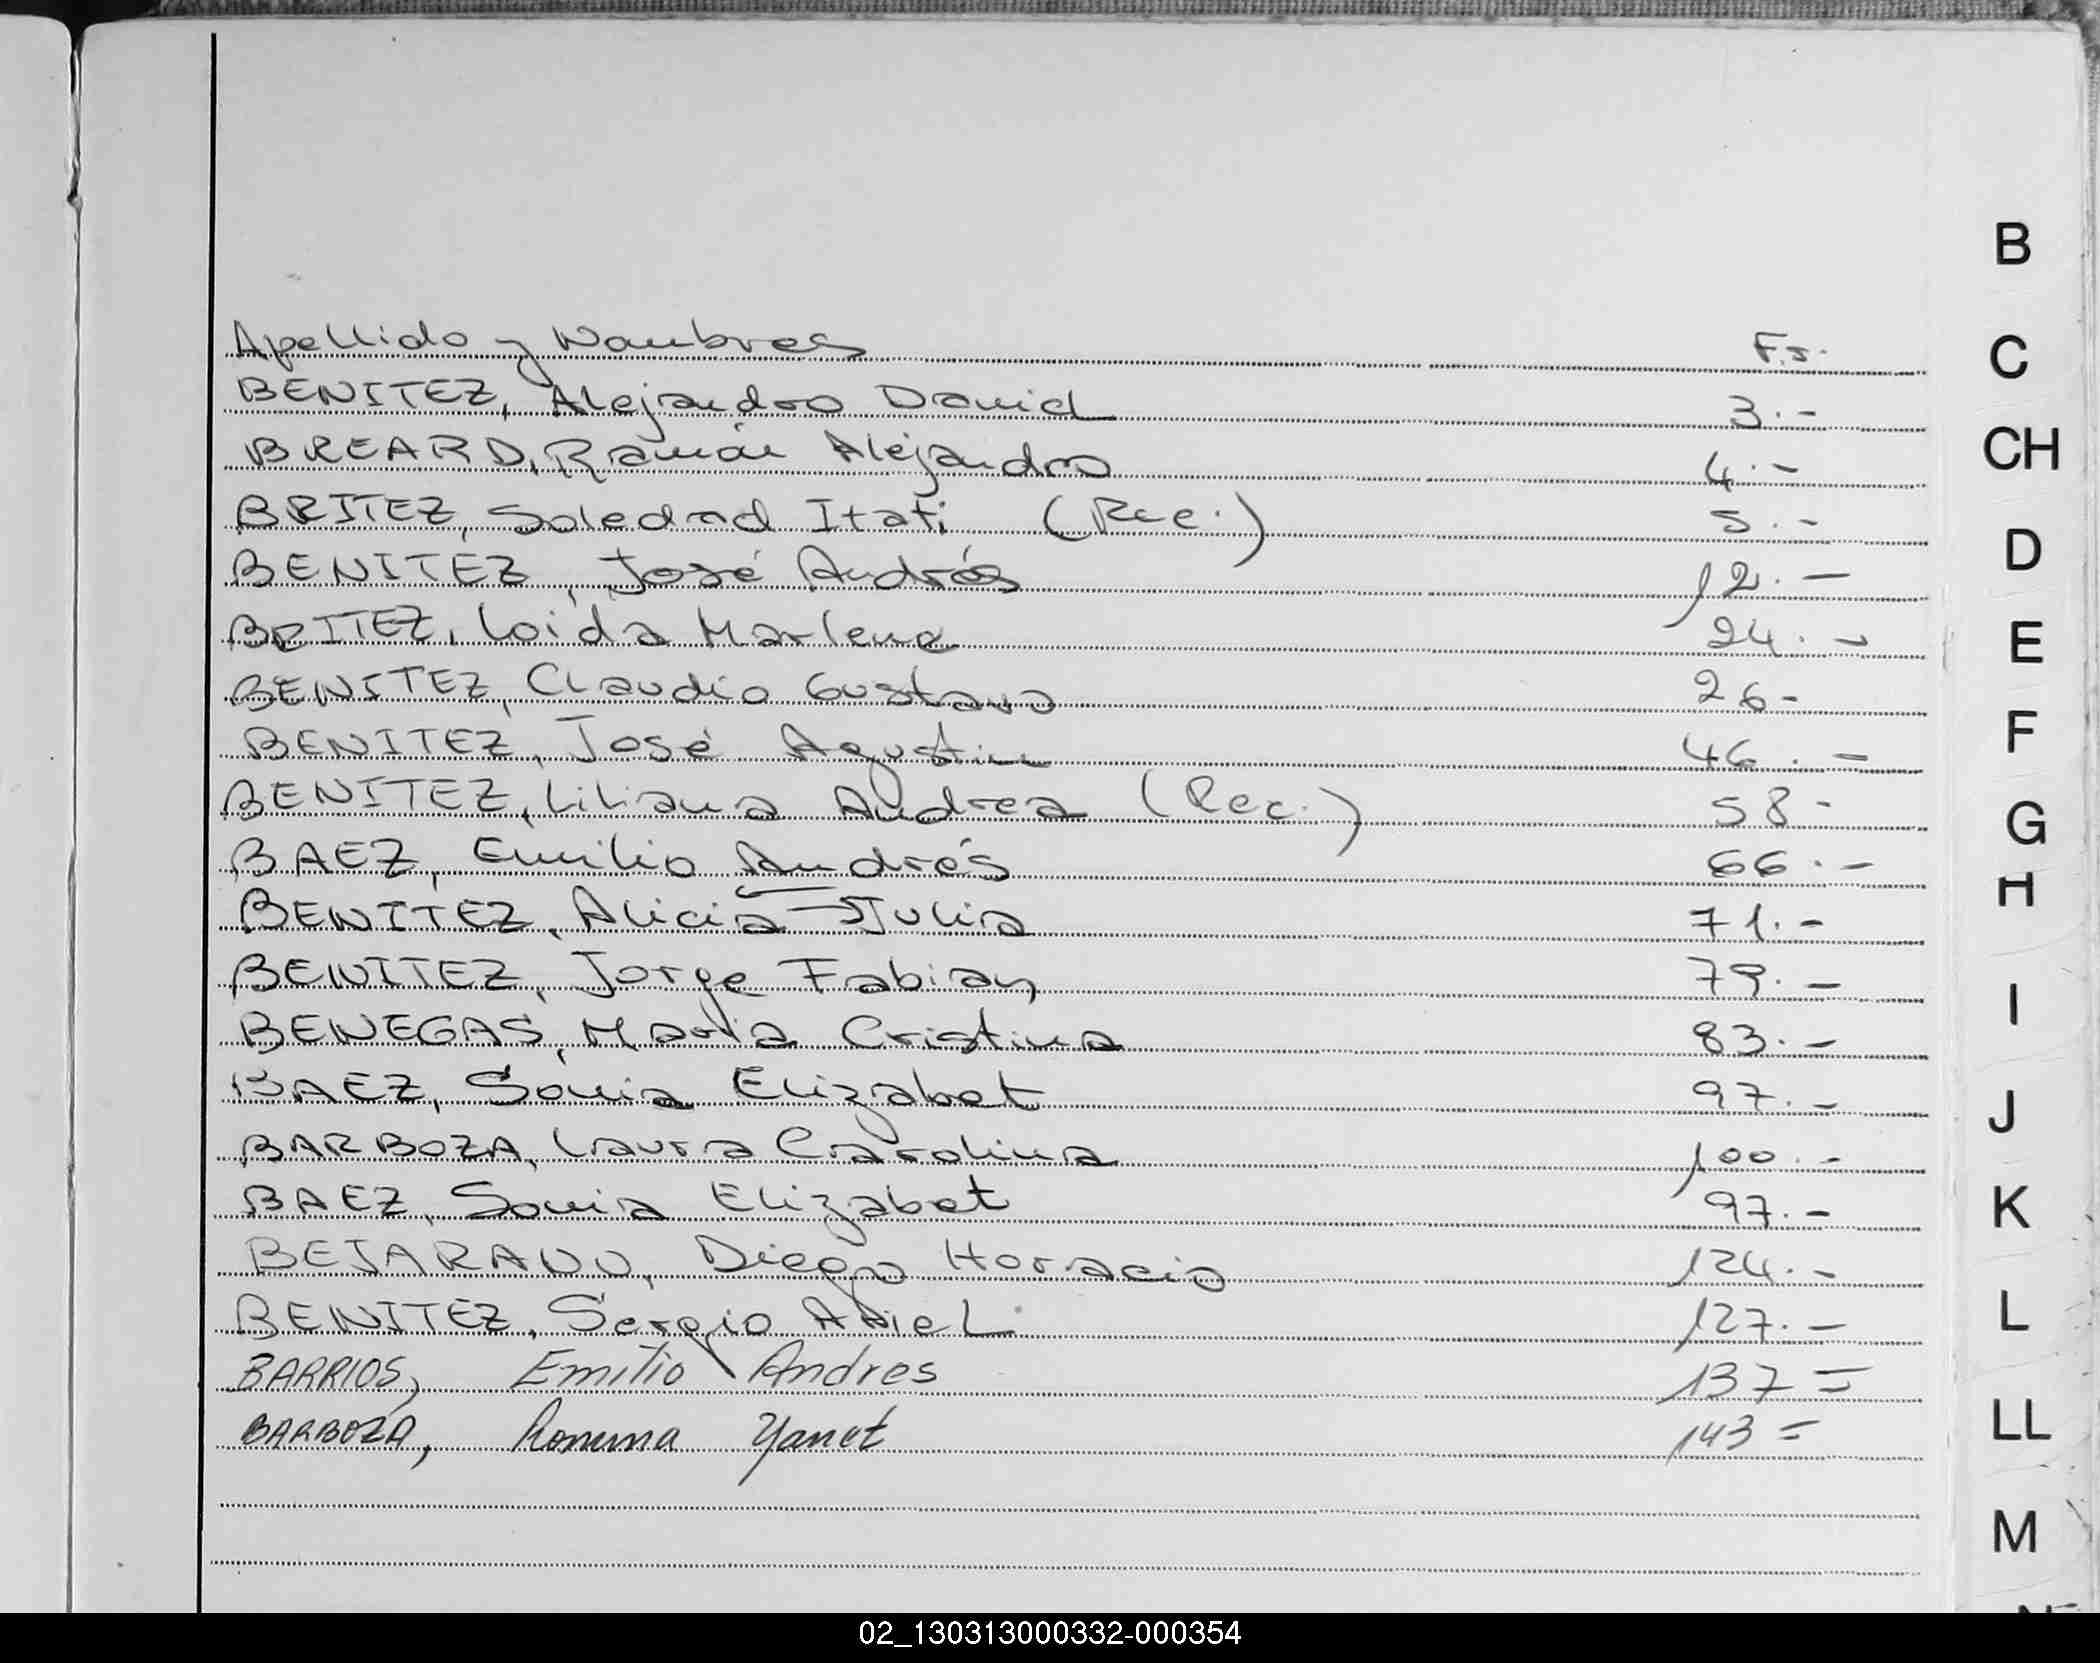 Apellido y Nombres F.s.
BENITEZ, Alejandro David 3.-
BREARD, Ramón Alejandro 4.-
BRITEZ, Soledad Itati (Rec.) 5.-
BENITEZ, José Andrés 12.-
BRITEZ, Loida Marlene 24.-
BENITEZ, Claudio Gustavo 26-
BENITEZ, José Agustin 46.-
BENITEZ, Liliana Andrea (Rec.) 58-
BAEZ, Emilio Andrés 66.-
BENITEZ, Alicia Julia 71.-
BENITEZ, Jorge Fabian 79.-
BENEGAS, Maria Cristina 83.-
BAEZ, Sonia Elizabet 97.-
BARBOZA, Laura Carolina 100.-
BAEZ, Sonia Elizabet 97.-
BEJARANO, Diego Horacio 124.-
BENITEZ, Sergio Ariel 127.-
BARRIOS, Emilio Andres 137=
BARBOZA, Romina Yanet 143=
B
C
CH
D
E
F
G
H
I
J
K
L
LL
M
02_130313000332-000354